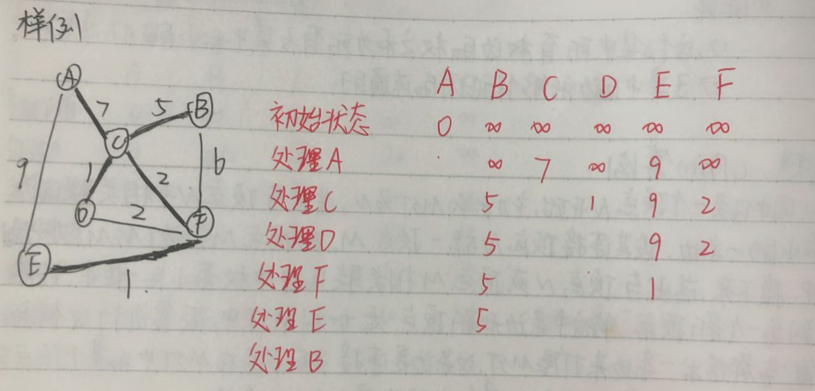 样例1
A
7
5
B
C
9
1
2
6
D
2
F
E
1.
A B C D E F
初始状态 0 ∞ ∞ ∞ ∞ ∞
处理A ∞ 7 ∞ 9 ∞
处理C 5 1 9 2
处理D 5 9 2
处理F 5 1
处理E 5
处理B